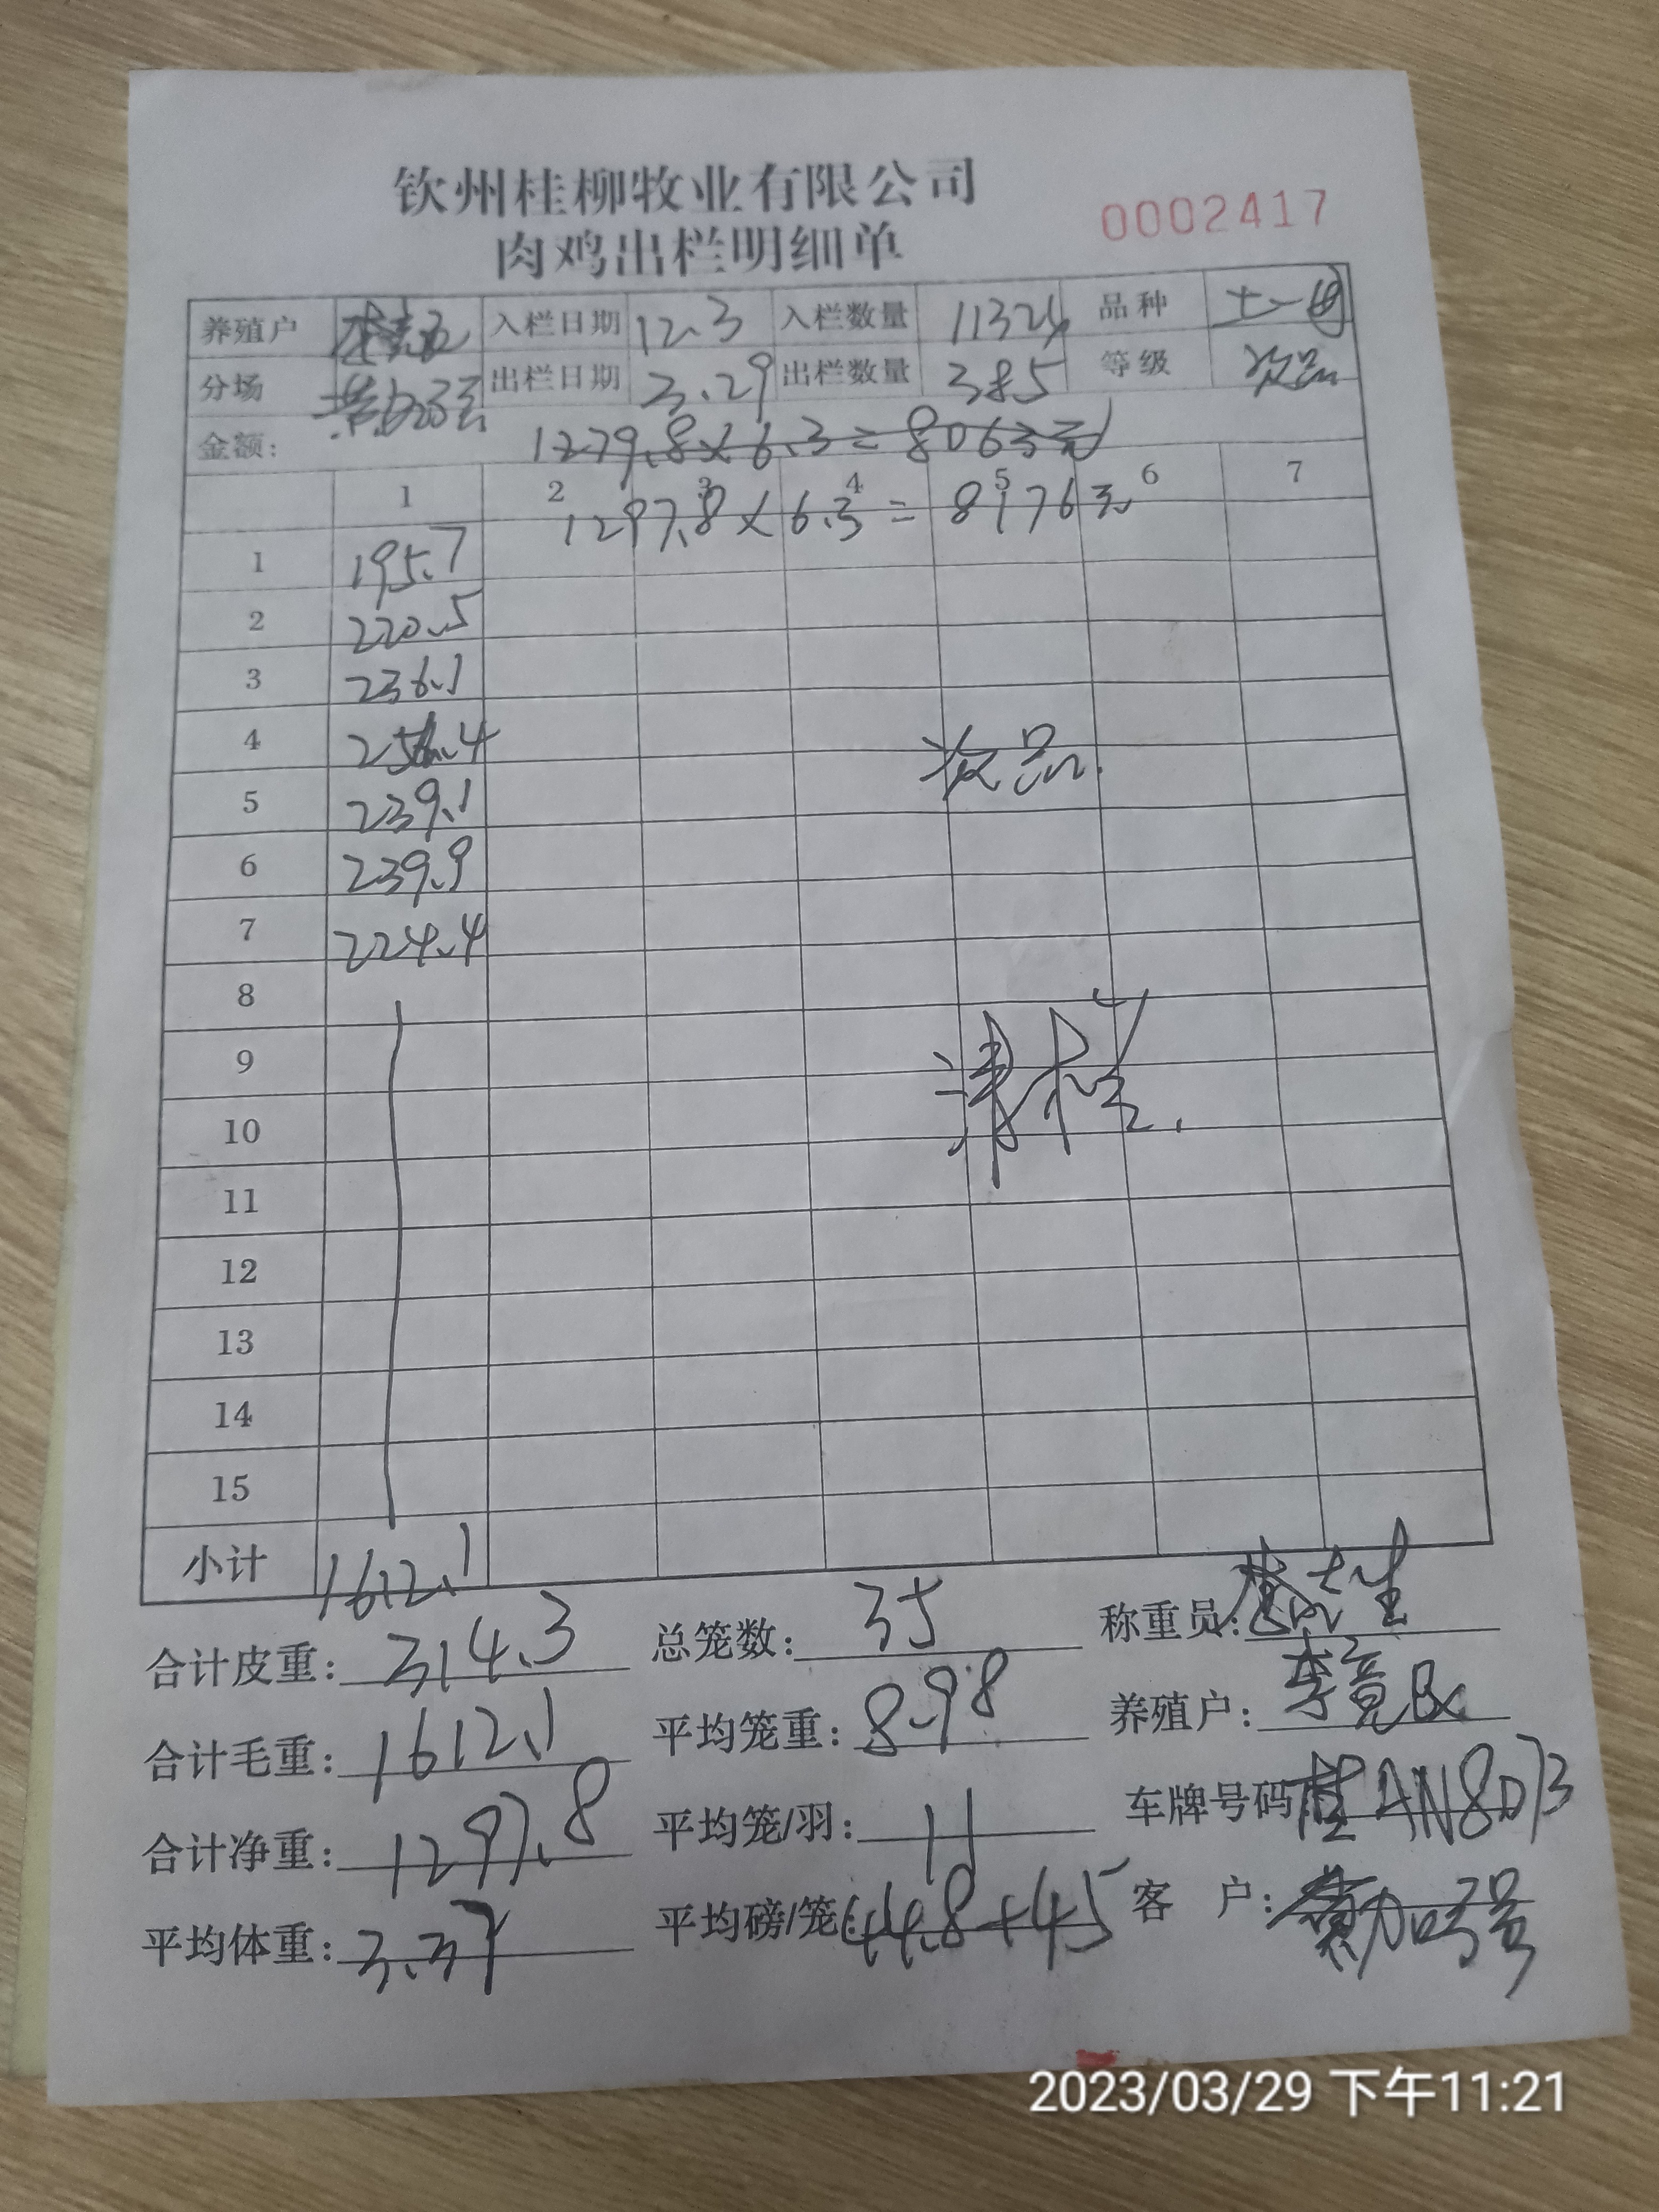 钦州桂柳牧业有限公司
0002417
肉鸡出栏明细单
养殖户 入栏日期 12.3 入栏数量 11324 品种
分场 出栏日期 3.29 出栏数量 385 等级 次品
金额: 1279.8×6.3=8063元
1 2 3 4 5 6 7
1297.8×6.3=8176元
1 195.7
2 220.5
3 236.1
4 256.4
5 239.1
6 239.9
7 224.4
次品.
8
9
清栏.
10
11
12
13
14
15
小计 1612.1
合计皮重: 314.3 总笼数: 35 称重员:
合计毛重: 1612.1 平均笼重: 8.98 养殖户:
合计净重: 1297.8 平均笼/羽: 11 车牌号码 桂AN8073
平均体重: 3.37 平均磅/笼: 44.8+45 客 户:
2023/03/29 下午11:21